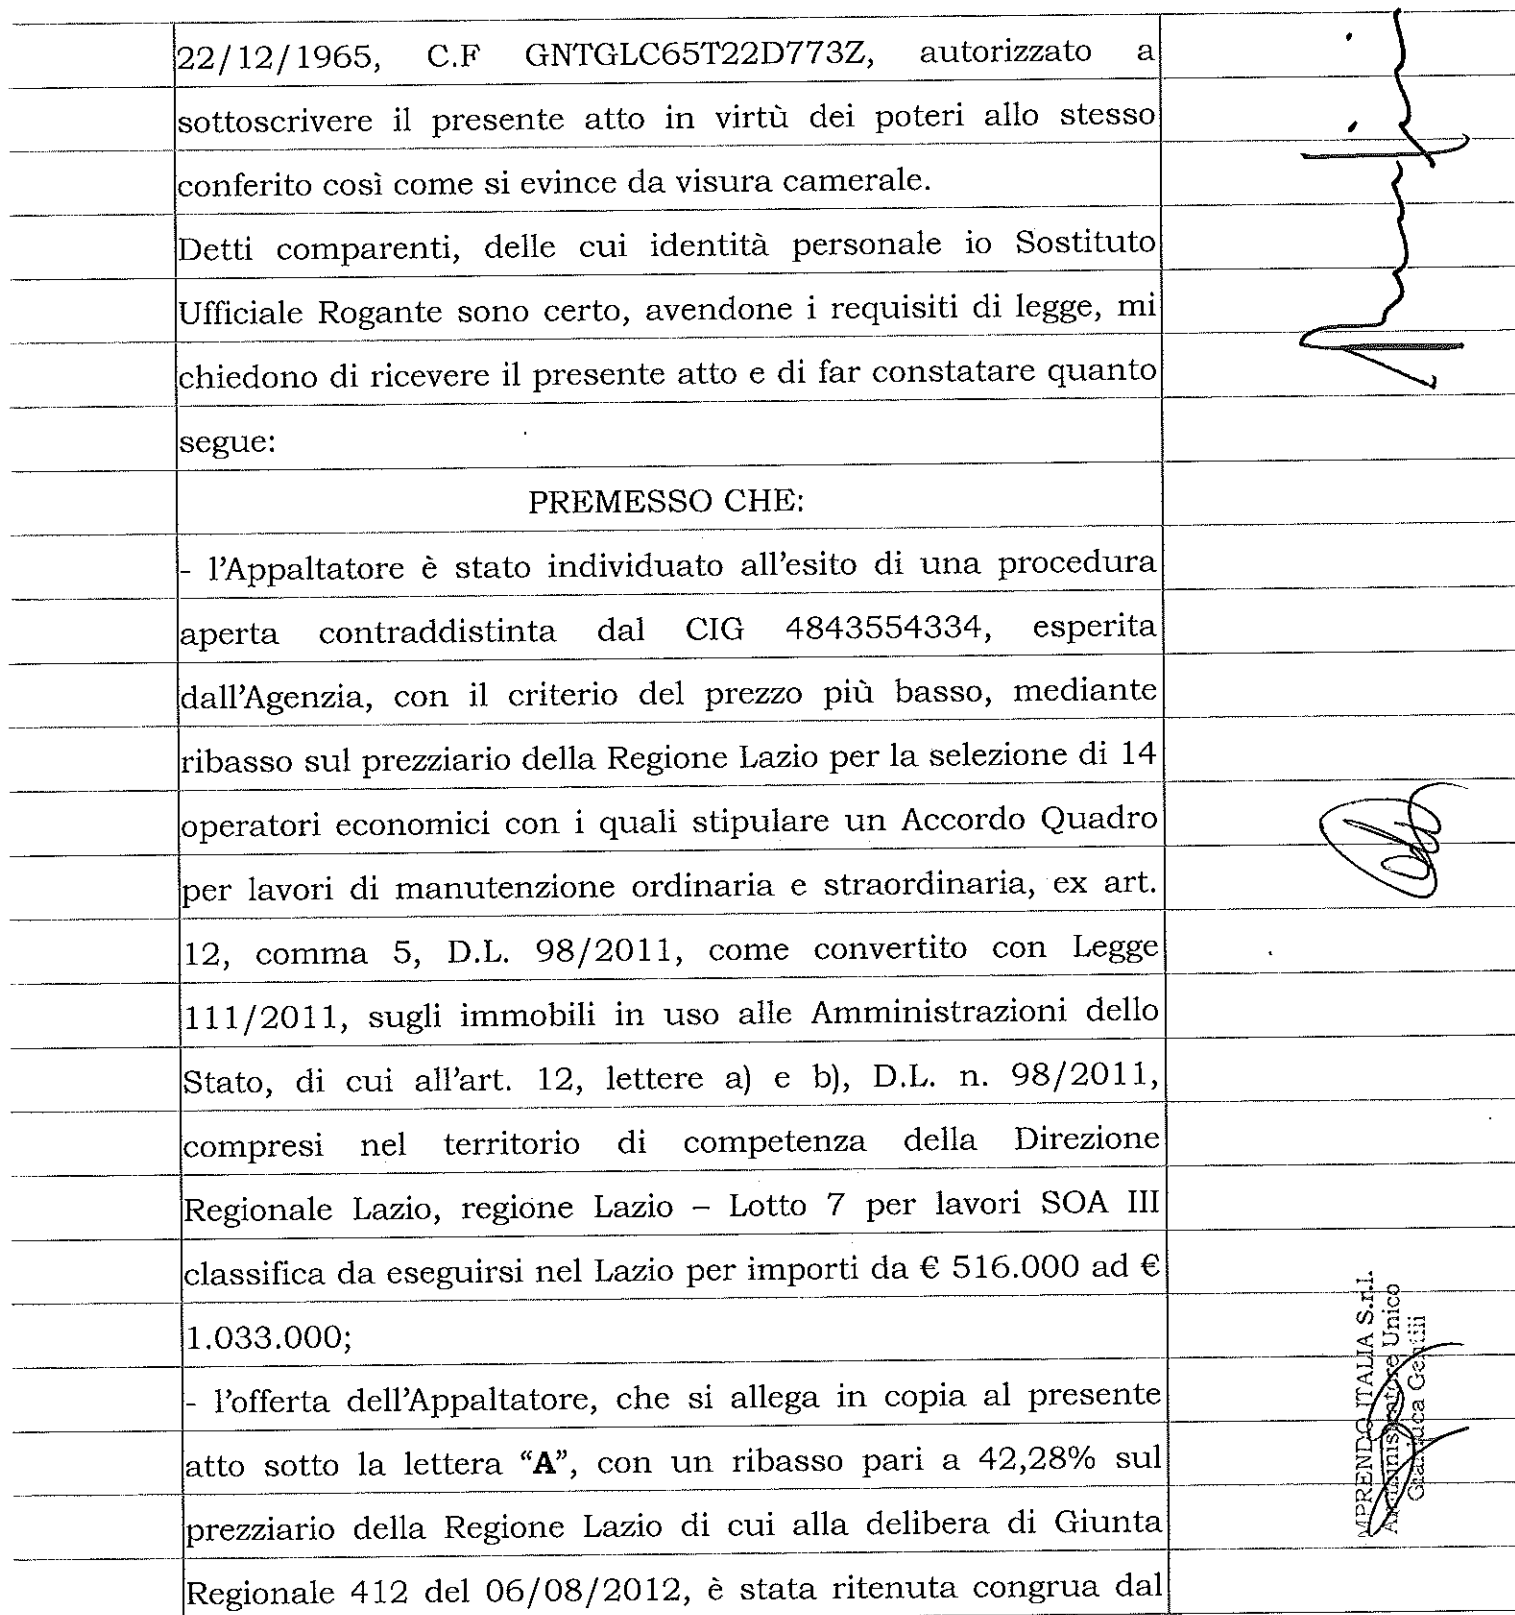 22/12/1965, C.F GNTGLC65T22D773Z, autorizzato a
sottoscrivere il presente atto in virtù dei poteri allo stesso
conferito così come si evince da visura camerale.
Detti comparenti, delle cui identità personale io Sostituto
Ufficiale Rogante sono certo, avendone i requisiti di legge, mi
chiedono di ricevere il presente atto e di far constatare quanto
segue:
PREMESSO CHE:
- l'Appaltatore è stato individuato all'esito di una procedura
aperta contraddistinta dal CIG 4843554334, esperita
dall'Agenzia, con il criterio del prezzo più basso, mediante
ribasso sul prezziario della Regione Lazio per la selezione di 14
operatori economici con i quali stipulare un Accordo Quadro
per lavori di manutenzione ordinaria e straordinaria, ex art.
12, comma 5, D.L. 98/2011, come convertito con Legge
111/2011, sugli immobili in uso alle Amministrazioni dello
Stato, di cui all'art. 12, lettere a) e b), D.L. n. 98/2011,
compresi nel territorio di competenza della Direzione
Regionale Lazio, regione Lazio – Lotto 7 per lavori SOA III
classifica da eseguirsi nel Lazio per importi da € 516.000 ad €
1.033.000;
- l'offerta dell'Appaltatore, che si allega in copia al presente
atto sotto la lettera “A”, con un ribasso pari a 42,28% sul
prezziario della Regione Lazio di cui alla delibera di Giunta
Regionale 412 del 06/08/2012, è stata ritenuta congrua dal
MPRENDO ITALIA S.r.l.
Amministratore Unico
Gianluca Gentili